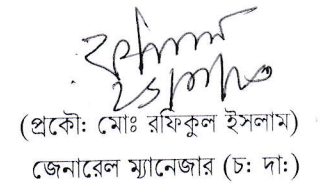 (প্রকৌ: মোঃ রফিকুল ইসলাম)
জেনারেল ম্যানেজার (চ: দা:)